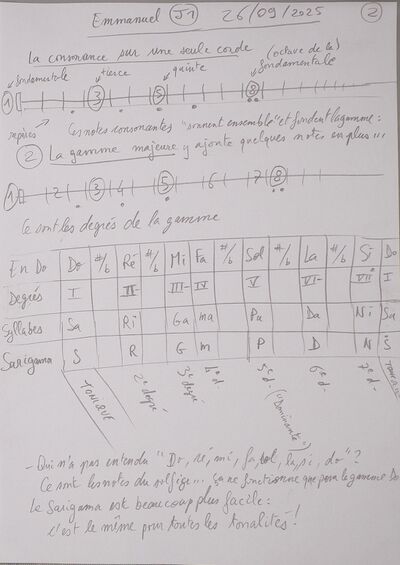 Emmanuel J1 26/09/2025 2
La consonance sur une seule corde (octave de la)
fondamentale tierce quinte fondamentale
1 3 5 8
repères Les notes consonantes "sonnent ensemble" et fondent la gamme :
2 La gamme majeure y ajoute quelques notes en plus...
1 2 3 4 5 6 7 8
Ce sont les degrés de la gamme
En Do Do #/b Ré #/b Mi Fa #/b Sol #/b La #/b Si Do
Degrés I II- III- IV V VI- VII° I
Syllabes Sa Ri Ga ma Pa Da Ni Sa
Sarigama S R G m P D N Ṡ
TONIQUE 2e degré 3e degré 4e d. 5e d. ("Dominante") 6e d. 7e d. TONIQUE
- Qui n'a pas entendu "Do, ré, mi, fa, sol, la, si, do" ?
Ce sont les notes du solfège... ça ne fonctionne que pour la gamme Do
Le Sarigama est beaucoup plus facile :
c'est le même pour toutes les tonalités !